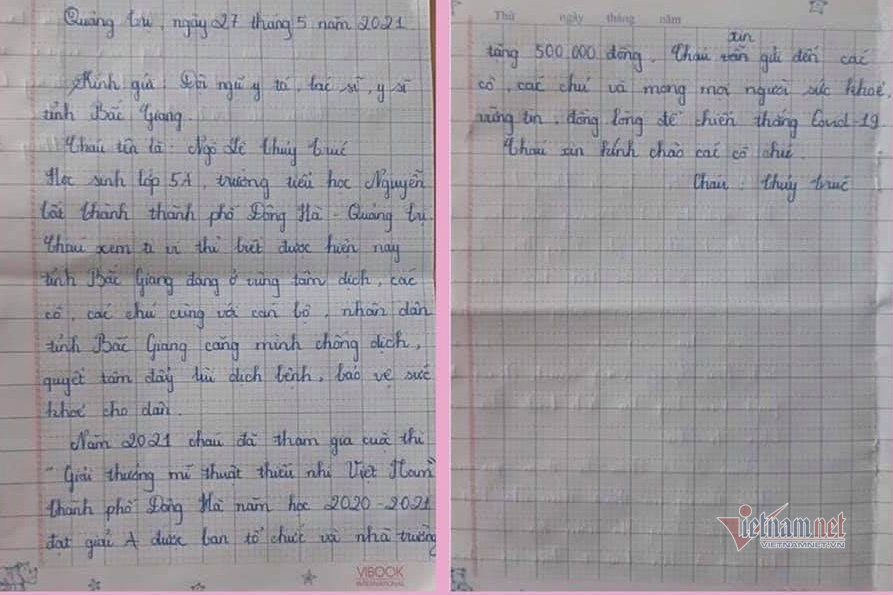 Quảng trị, ngày 27 tháng 5 năm 2021
Kính gửi: Đội ngũ y tá, bác sĩ, y sĩ
tỉnh Bắc Giang.
Cháu tên là: Ngô Lê Thủy Trúc
Học sinh lớp 5A, trường tiểu học Nguyễn
tất thành thành phố Đông Hà - Quảng trị.
Cháu xem ti vi thì biết được hiện nay
tỉnh Bắc Giang đang ở vùng tâm dịch, các
cô, các chú cùng với cán bộ, nhân dân
tỉnh Bắc Giang căng mình chống dịch,
quyết tâm đẩy lùi dịch bệnh, bảo vệ sức
khoẻ cho dân.
Năm 2021 cháu đã tham gia cuộc thi
"Giải thưởng mĩ thuật thiếu nhi Việt Nam"
thành phố Đông Hà năm học 2020-2021
đạt giải A được ban tổ chức và nhà trường
VIBOOK
INTERNATIONAL
Thứ ngày tháng năm
xin
tặng 500.000 đồng. Cháu gửi đến các
cô, các chú và mong mọi người sức khoẻ,
vững tin, đồng lòng để chiến thắng Covid-19
Cháu xin kính chào các cô chú.
Cháu: Thủy trúc
Vietnamnet
VIETNAMNET.VN